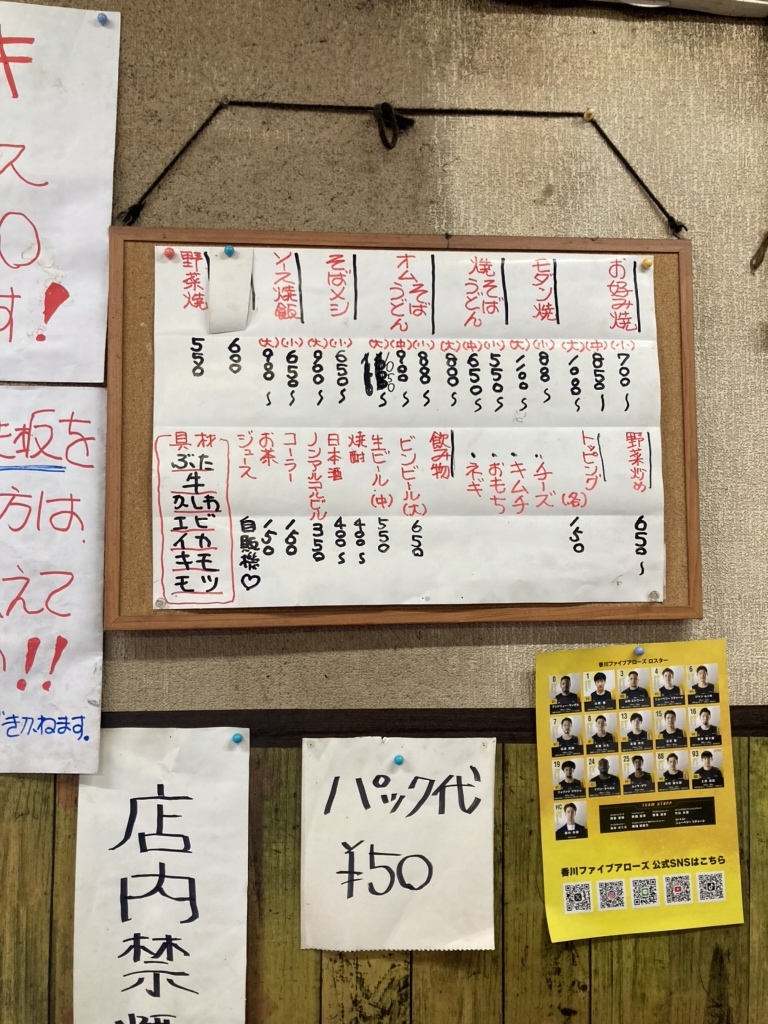 お好み焼
(小) 700〜
(中) 850〜
(大) 1000〜
モダン焼
(小) 800〜
(大) 1100〜
焼そば
うどん
(小) 550〜
(中) 650〜
(大) 800〜
オムそば
うどん
(小) 800〜
(中) 900〜
(大) 1050
そばメシ
(小) 650〜
(大) 900〜
ソース焼飯
(小) 650〜
(大) 900〜
600
野菜焼
550
野菜炒め 650〜
トッピング(各) 150
・チーズ
・キムチ
・おもち
・ネギ
飲み物
ビンビール(大) 650
生ビール(中) 550
焼酎 400〜
日本酒 400〜
ノンアルコールビル 350
コーラー 150
お茶 150
ジュース 自販機♡
具材
ぶた
牛
スじ肉
エビ
イカ
キモ
モツ
キ
ス
0
す!
き板を
方は、
えて
い!!
できかねます。
店内禁煙
パック代
¥50
香川ファイブアローズ ロスター
TEAM STAFF
香川ファイブアローズ 公式SNSはこちら